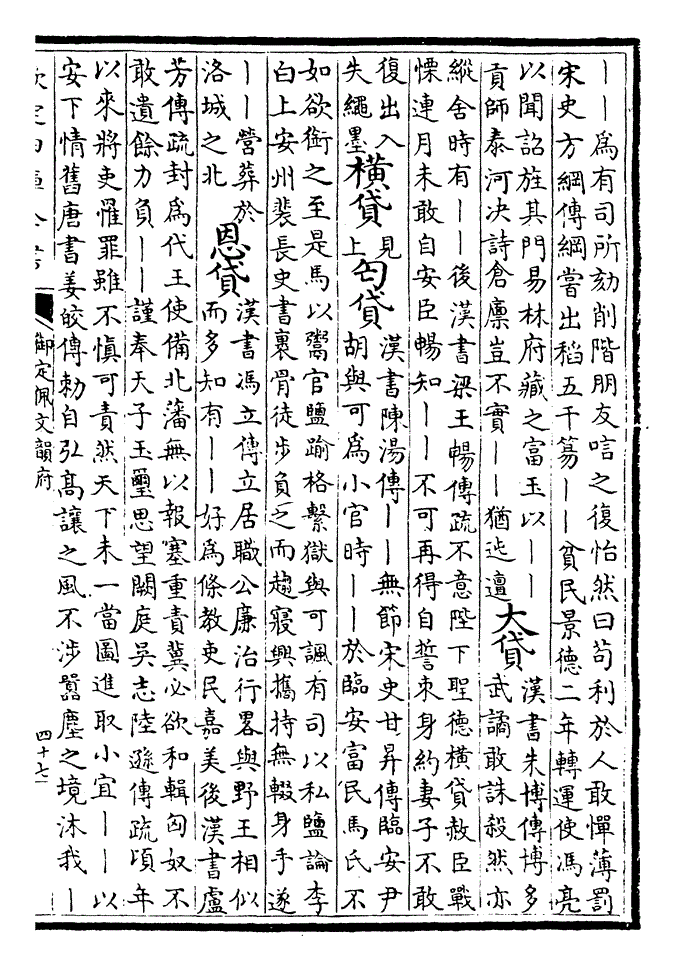 ——為有司所劾削階朋友唁之復怡然曰苟利於人敢憚薄罰
宋史方綱傳綱嘗出稻五千——貧民景德二年轉運使馮亮
以聞詔旌其門易林府藏之富王以——
貢師泰河決詩倉廩豈不實——猶迍邅
大貸
漢書朱博傳博多
武譎敢誅殺然亦
縱舍時有——後漢書梁王暢傳疏不意陛下聖德橫貸赦臣戰
慄連月未敢自安臣暢知——不可再得自誓束身約妻子不敢
復出入
失繩墨
橫貸
見
上
匄貸
漢書陳湯傳——無節宋史甘昇傳臨安尹
胡與可為小官時——於臨安富民馬氏不
如欲銜之至是馬以鬻官鹽踰格繫獄與可諷有司以私鹽論李
白上安州裴長史書裹骨徒步負之而趨寢興攜持無輟身手遂
——營葬於
洛城之北
恩貸
漢書馮立傳立居職公廉治行畧與野王相似
而多知有——好為條教吏民嘉美後漢書盧
芳傳疏封為代王使備北藩無以報塞重責冀必欲和輯匈奴不
敢遺餘力負——謹奉天子玉璽思望闕庭吳志陸遜傳疏頃年
以來將吏罹罪雖不慎可責然天下未一當圖進取小宜——以
安下情舊唐書姜皎傳勅自弘髙讓之風不涉囂塵之境沐我—
欽定四庫全書
御定佩文韻府
四十七